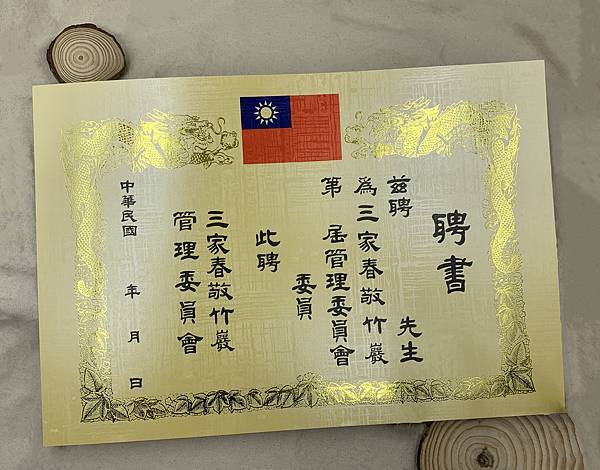 聘書
茲聘 先生
為三家春敬竹巖
第 屆管理委員會
委員
此聘
三家春敬竹巖
管理委員會
中華民國 年 月 日